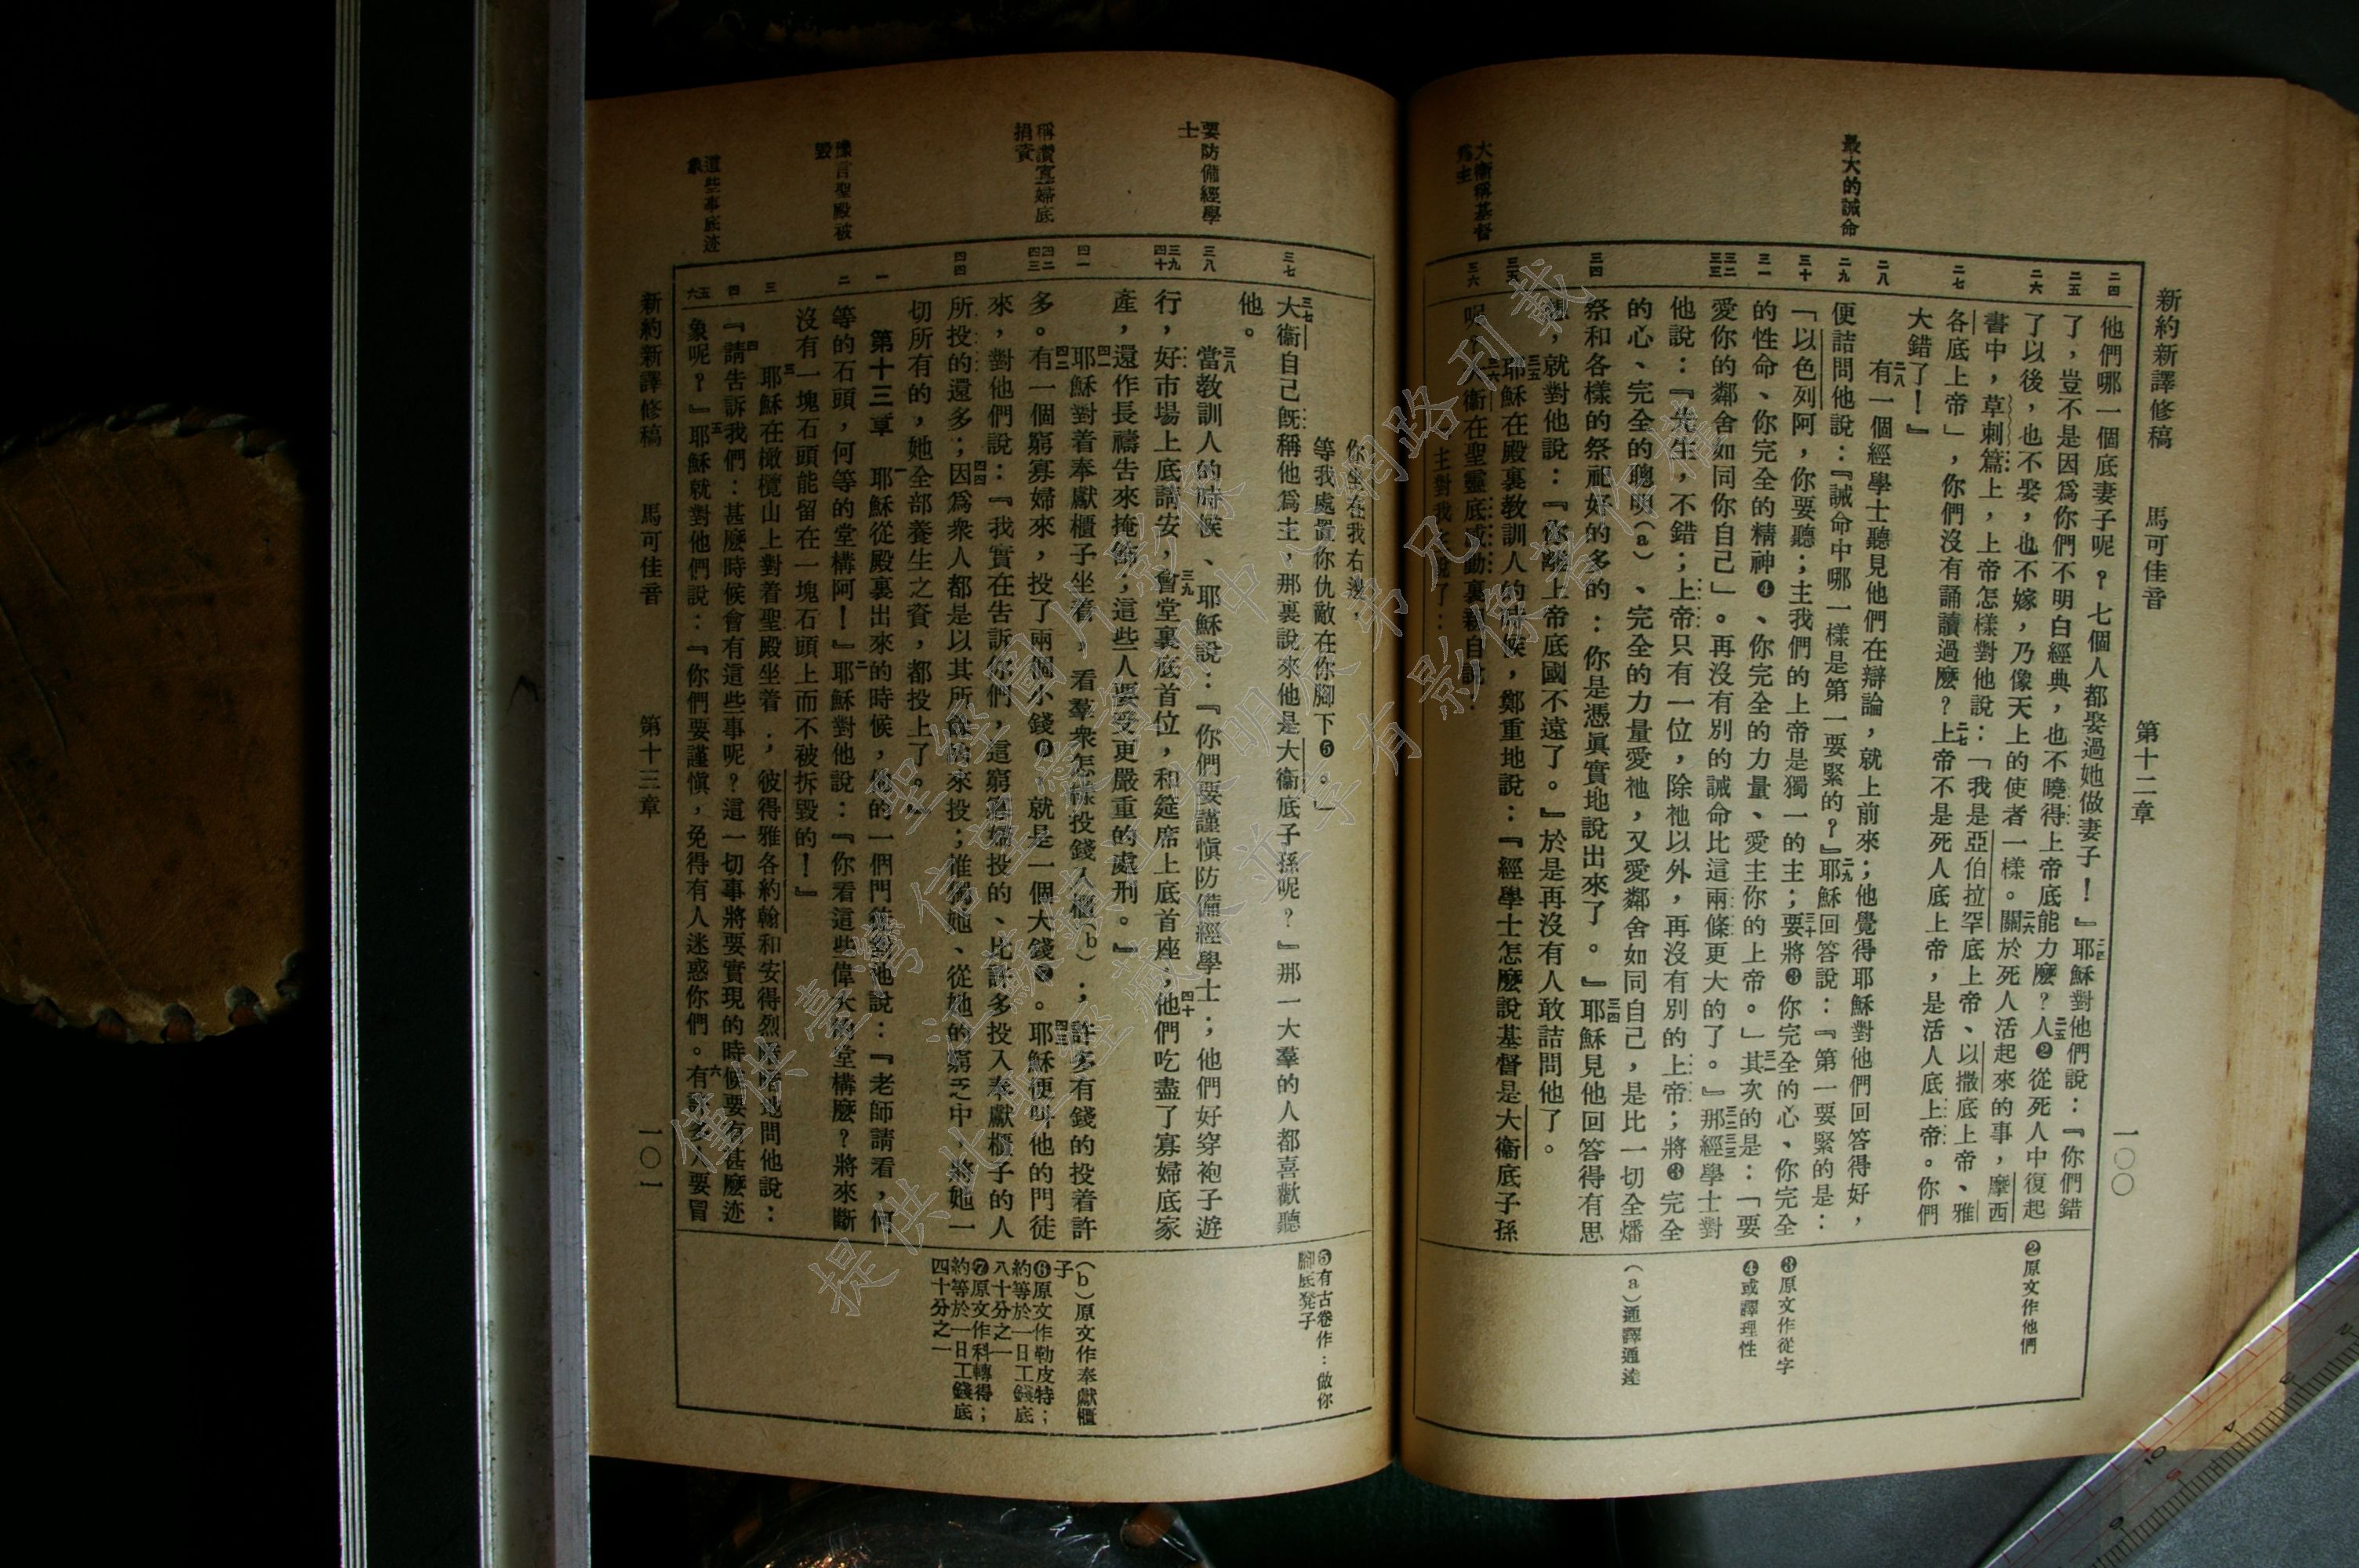 新約新譯修稿 馬可佳音 第十二章 一〇〇
最大的誡命
大衞稱基督
爲主
二四
二五
二六
二七
二八
二九
三十
三一
三二
三三
三四
三五
三六
他們哪一個底妻子呢?七個人都娶過她做妻子!』二四耶穌對他們說:『你們錯
了,豈不是因爲你們不明白經典,也不曉得上帝底能力麼?二五人❷從死人中復起
了以後,也不娶,也不嫁,乃像天上的使者一樣。二六關於死人活起來的事,摩西
書中,草刺篇上,上帝怎樣對他說:「我是亞伯拉罕底上帝、以撒底上帝、雅
各底上帝」,你們沒有誦讀過麼?二七上帝不是死人底上帝,是活人底上帝。你們
大錯了!』
二八有一個經學士聽見他們在辯論,就上前來;他覺得耶穌對他們回答得好,
便詰問他說:『誡命中哪一樣是第一要緊的?』二九耶穌回答說:『第一要緊的是:
「以色列阿,你要聽;主我們的上帝是獨一的主;三十要將❸你完全的心、你完全
的性命、你完全的精神❹、你完全的力量、愛主你的上帝。」三一其次的是:「要
愛你的鄰舍如同你自己」。再沒有別的誡命比這兩條更大的了。』三二那經學士對
他說:『先生,不錯;上帝只有一位,除祂以外,再沒有別的上帝;三三將❸完全
的心、完全的聰明(a)、完全的力量愛祂,又愛鄰舍如同自己,是比一切全燔
祭和各樣的祭祀好的多的:你是憑眞實地說出來了。』三四耶穌見他回答得有思
想,就對他說:『你離上帝底國不遠了。』於是再沒有人敢詰問他了。
三五耶穌在殿裏教訓人的時候,鄭重地說:『經學士怎麼說基督是大衞底子孫
呢?三六大衞在聖靈底感動裏親自說:
主對我主說了:
❷原文作他們
❸原文作從字
❹或譯理性
(a)通譯通達
要防備經學
士
稱讚寡婦底
捐資
豫言聖殿被
毀
這些事底迹
象
三七
三八
三九
四十
四一
四二
四三
四四
一
二
三
四
五
六
你坐在我右邊,
等我處置你仇敵在你腳下❺。」
三七大衞自己既稱他爲主,那裏說來他是大衞底子孫呢?』那一大羣的人都喜歡聽
他。
三八當教訓人的時候、耶穌說:『你們要謹愼防備經學士;他們好穿袍子遊
行,好市場上底請安,三九會堂裏底首位,和筵席上底首座,四十他們吃盡了寡婦底家
產,還作長禱告來掩飾;這些人要受更嚴重的處刑。』
四一耶穌對着奉獻櫃子坐着,看羣衆怎樣投錢入櫃(b);許多有錢的投着許
多。四二有一個窮寡婦來,投了兩個小錢❻,就是一個大錢❼。四三耶穌便叫他的門徒
來,對他們說:『我實在告訴你們,這窮寡婦投的、比許多投入奉獻櫃子的人
所投的還多;四四因爲衆人都是以其所餘的來投;惟獨她、從她的窮乏中,將她一
切所有的,她全部養生之資,都投上了。』
第十三章 一耶穌從殿裏出來的時候,他的一個門徒對他說:『老師請看,何
等的石頭,何等的堂構阿!』二耶穌對他說:『你看這些偉大的堂構麼?將來斷
沒有一塊石頭能留在一塊石頭上而不被拆毀的!』
三耶穌在橄欖山上對着聖殿坐着,彼得雅各約翰和安得烈暗暗地問他說:
四『請告訴我們:甚麼時候會有這些事呢?這一切事將要實現的時候要有甚麼迹
象呢?』五耶穌就對他們說:『你們要謹愼,免得有人迷惑你們。六有許多人要冒
❺有古卷作:做你
腳底凳子
(b)原文作奉獻櫃
子
❻原文作勒皮特;
約等於一日工錢底
八十分之一
❼原文作科轉得;
約等於一日工錢底
四十分之一
新約新譯修稿 馬可佳音 第十三章 一〇一